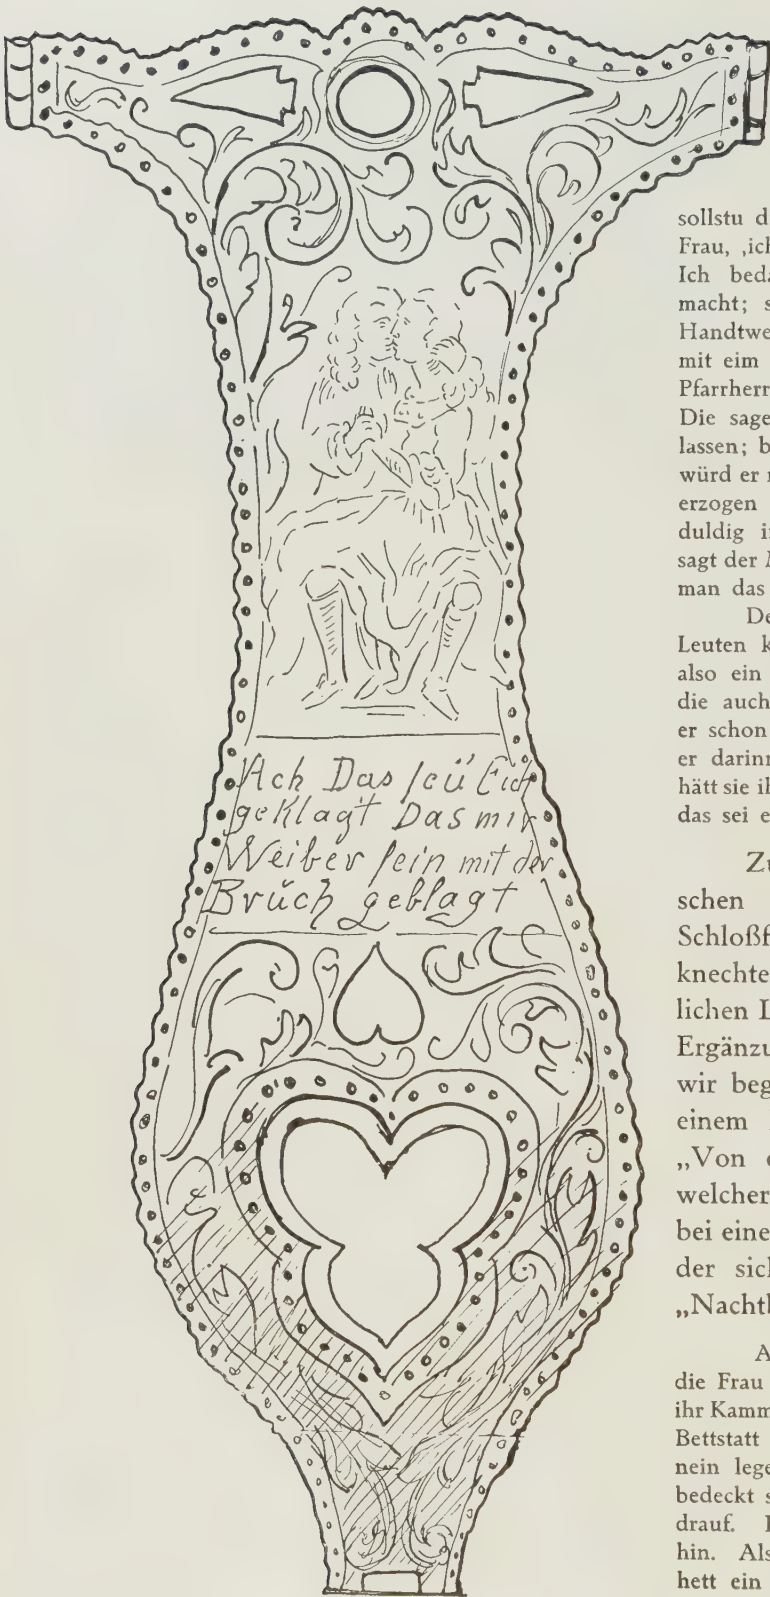 Ach Das seü Eich
geklagt Das mir
Weiber sein mit der
Brüch geblagt
sollstu d
Frau, ‚ich
Ich beda
macht; s
Handtwe
mit eim
Pfarrherr
Die sage
lassen; b
würd er
erzogen
duldig i
sagt der
man das
De
Leuten k
also ein
die auch
er schon
er darinn
hätt sie ih
das sei e
Zu
schen
Schloßf
knechte
lichen L
Ergänzu
wir beg
einem
„Von
welcher
bei eine
der sich
„Nachtb
A
die Frau
ihr Kamm
Bettstatt
nein lege
bedeckt s
drauf.
hin. Als
hett ein